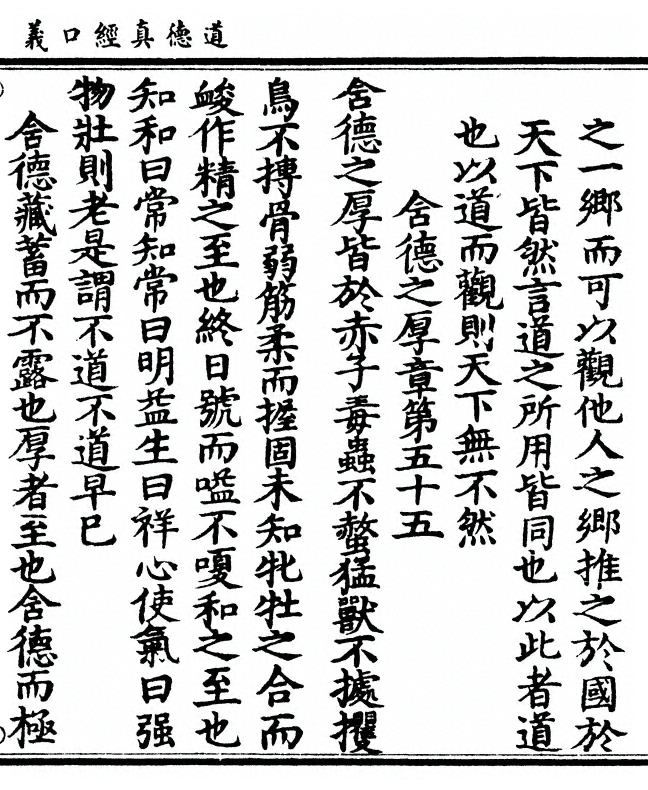 道德真經口義
之一鄉而可以觀他人之鄉推之於國於
天下皆然言道之所用皆同也以此者道
也以道而觀則天下無不然
含德之厚章第五十五
含德之厚皆於赤子毒蟲不螫猛獸不據攫
鳥不搏骨弱筋柔而握固未知牝牡之合而
䘒作精之至也終日號而嗌不嗄和之至也
知和曰常知常曰明益生曰祥心使氣曰强
物壯則老是謂不道不道早已
含德藏蓄而不露也厚者至也含德而極